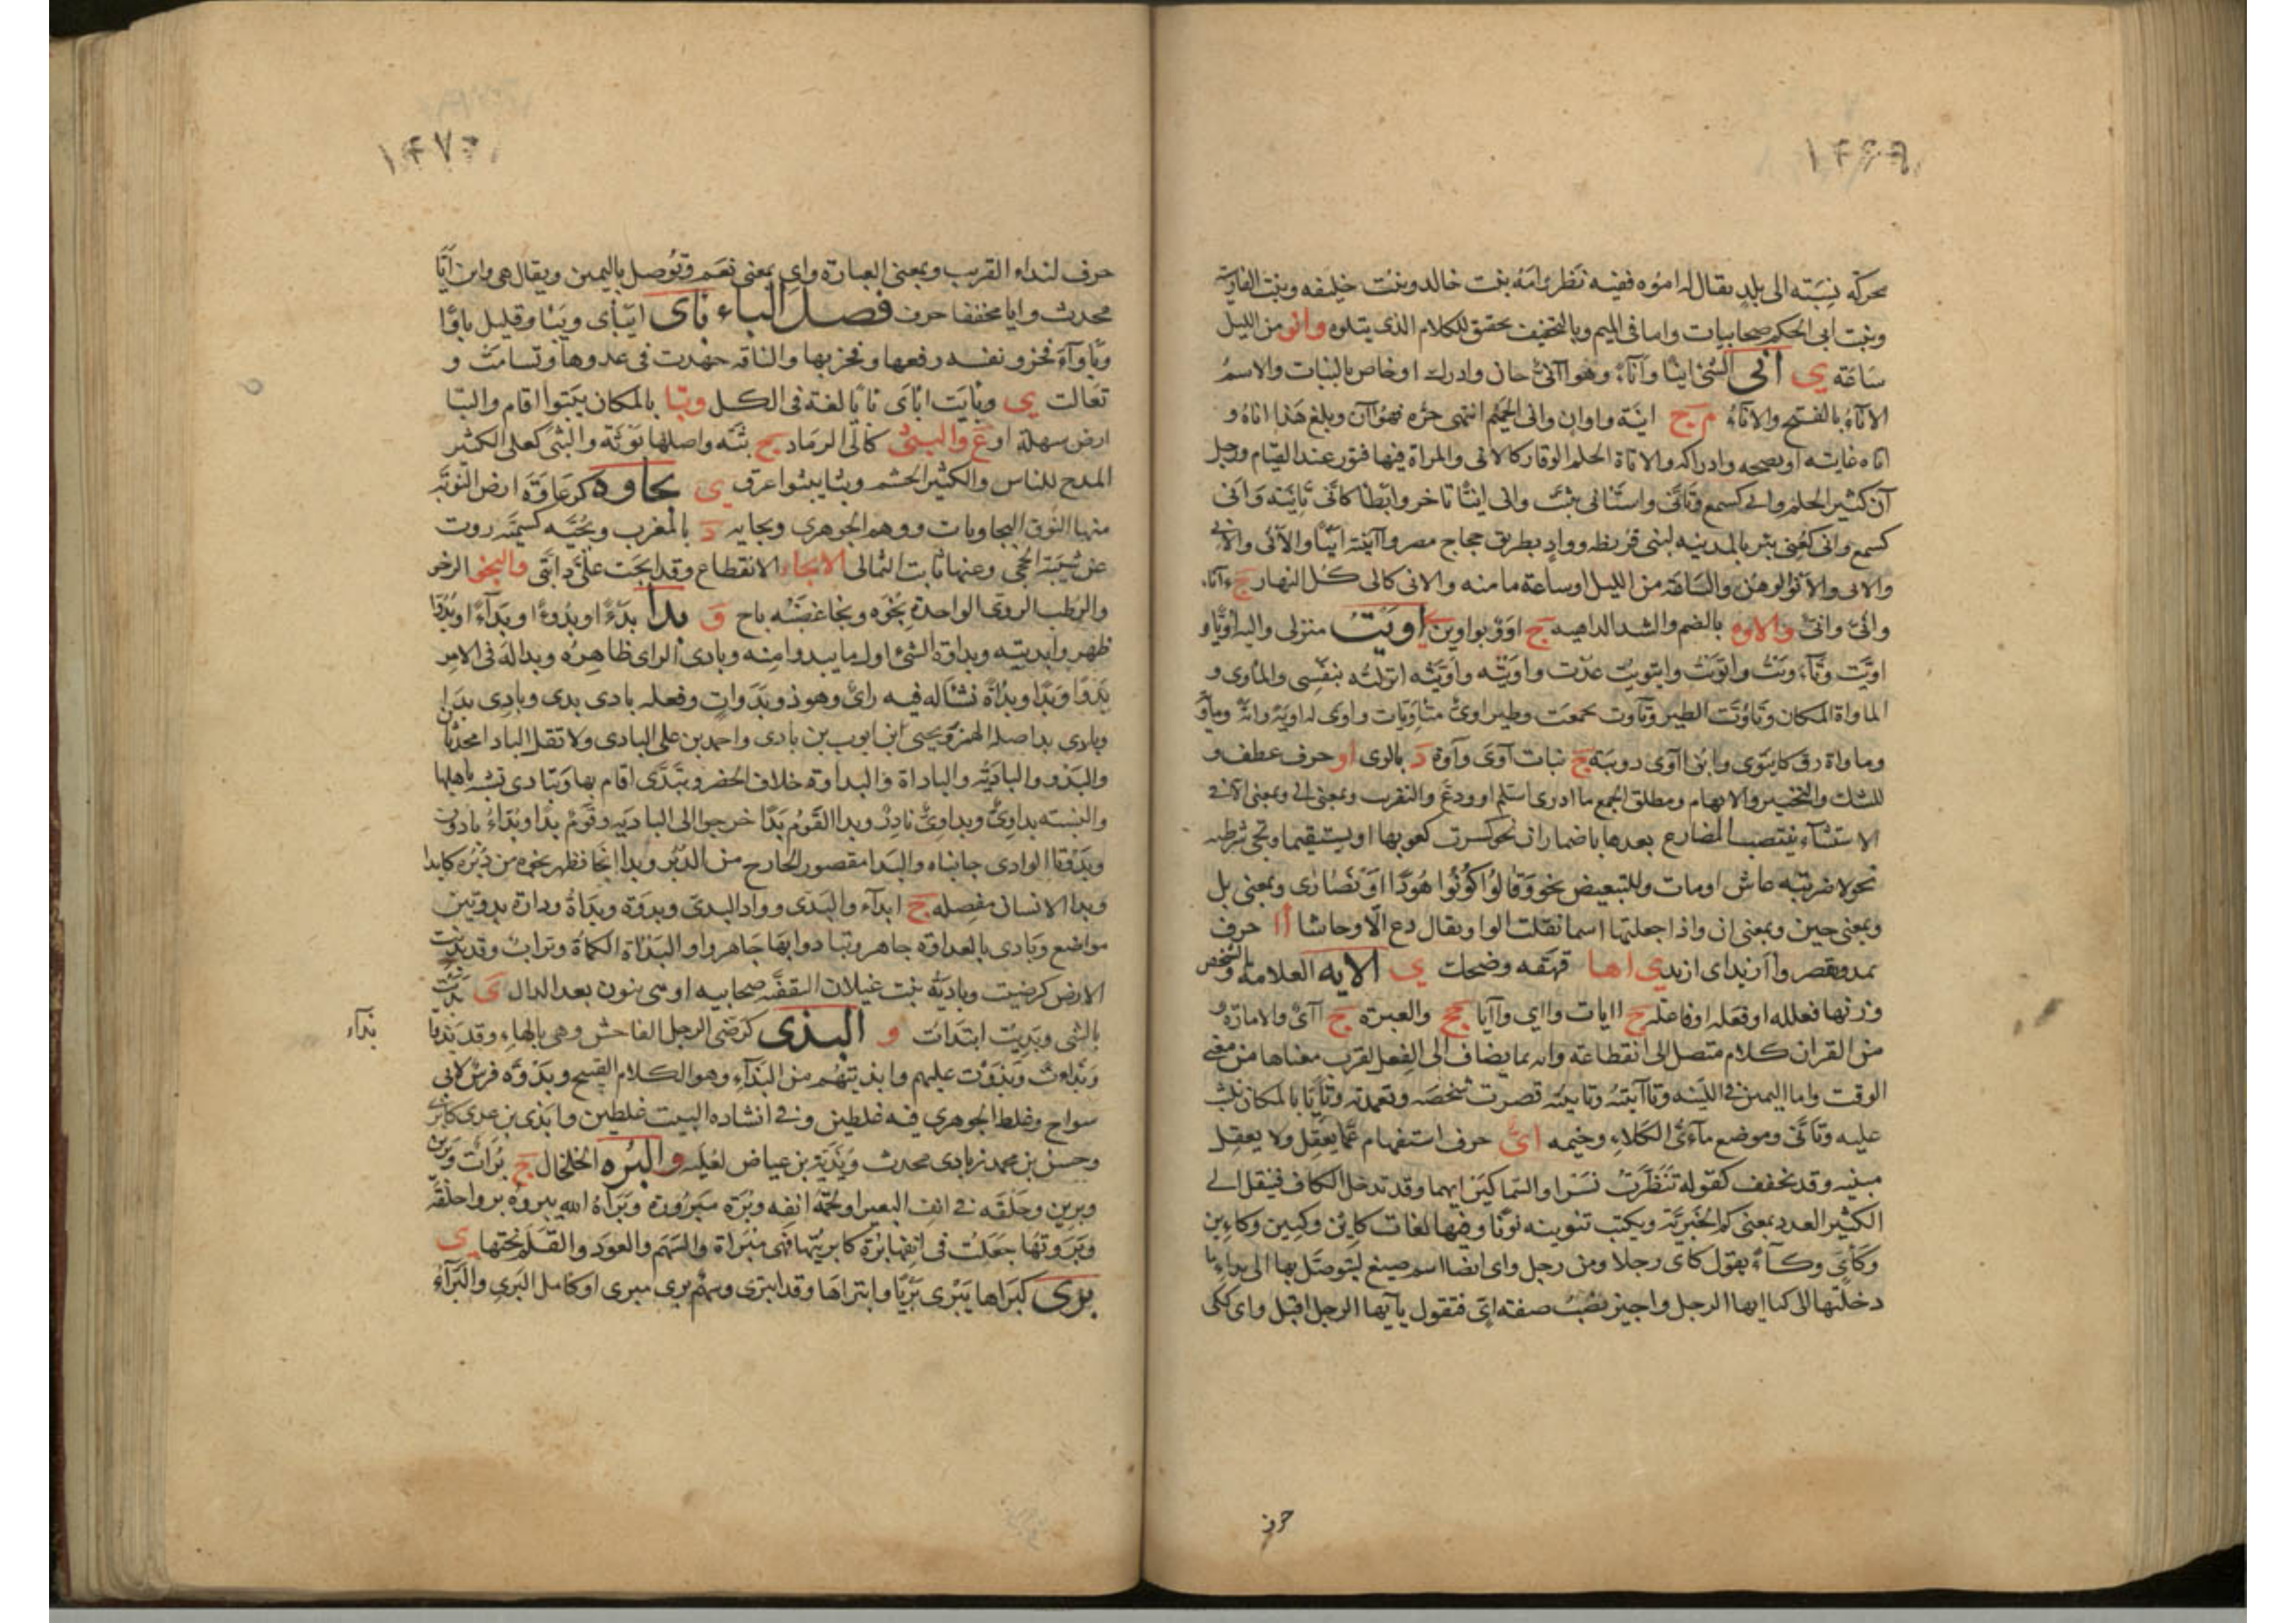 ١٤٦٩
محركة نسبته الى بلد يقال له اموه ففيه نظر وامه بنت خالد وبنت خليفه وبنت الفارسية
وبنت ابى الحكم صحابيات واما فى الميم وبالتخفيف تحقق للكلام الذى يتلوه وانو من الليل
ساعة ي انى الشئ انيا واناء وهو انى حان وادرك او خاص بالنبات والاسم
الاناء بالفتح والاناء م ج انية واوان وانى الحميم انتهى حره فهو آن وبلغ هذا اناه و
اناه غايته او نضجه وادراكه والاناة الحلم والوقار كالانى والمراة فيها فتور عند القيام ورجل
آن كثير الحلم وانى كسمع وتانى واستانى تثبت وانى انيا تاخر وابطا كانى تانية وانى
كسمع وانى كغنى بئر بالمدينه لبنى قريظه وواد بطريق حجاج مصر وآنيته ايناء والانى والانى
والانى والانو الوهن والساعة من الليل او ساعة ما منه والانى كالى كل النهار ج آناء
وانى وانى والاوه بالضم والشد الداهيه ج اوو بواوين ي اويت منزلى واليه اويا و
اويت وتاويت واتويت وائتويت عدت واويته واويته انزلته بنفسى والماوى و
الماواة المكان وتاوت الطير وتآوت تجمعت وطير اوى متاويات واوى له اوية واية وماوية
وماواة رق كايتوى وابن آوى دويبة ج نبات آوى وآوة د بالرى او حرف عطف و
للشك والتخيير والابهام ومطلق الجمع ما ادرى اسلم او ودع والتقريب وبمعنى الى وبمعنى الا فى
الاستثناء ينتصب المضارع بعدها باضمار ان نحو كسرت كعوبها او يستقيما وتجى شرطيه
نحو لاضربنه عاش او مات وللتبعيض نحو وقالوا كونوا هودا او نصارى وبمعنى بل
وبمعنى حين وبمعنى ان واذا جعلتها اسما ثقلت الواو يقال دع الاو جانبا أا حرف
يمد ويقصر وا آزيد اى ازيد ي اها قهقه وضحك ي الايه العلامه والشخص
وزنها فعله او فعله او فاعله ج ايات واى وآيا جج والعبرة ج آى والامارة و
من القران كلام متصل الى انقطاعه وانه مما يضاف الى الفعل لقرب معناها من معنى
الوقت واما اليمن فى اللينه وتاآييته وتاييته قصدت شخصه وتعمدته وتايا بالمكان تلبث
عليه وتانى وموضع مآءى الكلاء وخيمه اى حرف استفهام عما يعقل ولا يعقل
مبنيه وقد تخفف كقوله تنظرت نسرا والسماكين ايهما وقد تدخل الكاف فينقل الى
الكثير العدد بمعنى كم الخبرية ويكتب تنوينه نونا وفيها لغات كاين وكيين وكاءين
وكاى وكاء يقول كاى رجلا ومن رجل واى ايضا اسم صيغ ليتوصل بها الى نداء ما
دخلتها ال كيا ايها الرجل واجيز نصب صفته اى فتقول يا ايها الرجل اقبل واى ككى
حرف
١٤٧٠
حرف لنداء القريب وبمعنى العبارة واى بمعنى نعم وتوصل باليمين ويقال هى وابن ايا
محدث وايا مخففا حرف فصل الباء باى ايباى ويبا وقليل باوا
وباوآء فخر ونفسه رفعها وفخر بها والناقه جهدت فى عدوها وتسامت و
تعالت ي وبايت اباى بايا لغة فى الكل وبتا بالمكان يبتوا اقام والبثا
ارض سهلة او ع والبثى كالى الرماد ج بثه واصلها بوثة والبثى كعلى الكثير
المدح للناس والكثير الحشم وبثا يبثوا عرق ي بجاوه كزعاوة ارض النوبة
منها النوق البجاويات ووهم الجوهرى وبجايه د بالمغرب وبجيه كسمية روت
عن شيبة الحجى وعنها ثابت الثمالى الابخاء الانقطاع وقد ابخت على دابتى والبخو الرخو
والرطب الردى الواحدة بخوه وبخا غضبه باخ و بدا بدوا وبدوا وبداء او بدوا
ظهر وابديته وبداوة الشئ اول ما يبدوا منه وبادى الراى ظاهره وبدا له فى الامر
بدوا وبدا وبداة نشا له فيه راى وهو ذو بدوات وفعله بادى بدى وبادى بدا
وبادى بدا اصله الهمز ويحيى ابن ايوب بن بادى واحمد بن على البادى ولا تقل الباد امحدثان
والبدو والبادية والباداة والبداوة خلاف الحضر وتبدى اقام بها وتبادى تشبه باهلها
والنسبه بداوى وبداوى نادر وبدا القوم بدا خرجوا الى البادية وقوم بدا وبداء بادون
وبدوتا الوادى جانباه والبدا مقصور الخارج من الدبر وبدا انجا فظهر نجوه من دبره كابدا
وبدا الانسان مفصله ج ابداء والبدى وواد البدى وبدوة وبداة ودارة بدوتين
مواضع وبادى بالعداوة جاهر وتبادوا بها تجاهروا والبداة الكماة وتراب وقد بديت
الارض كرضيت وبادية بنت غيلان الثقفية صحابيه او هى بنون بعد الدال ي بديت
بالشى وبديت ابتدات و البذى كرضى الرجل الفاحش وهى بالهاء وقد بذيا
بذآء
وبذاءت وبذوت عليهم وابذيتهم من البذاء وهو الكلام القبيح وبذوه فرس لابى
سواج وغلط الجوهرى فيه غلطين وفى انشاده البيت غلطين وابذى بن عدى كابزى
وحسن بن محمد بن بادى محدث وبذية بن عياض لغليه و البره الخلخال ج برات وبرين
وبرين وحلقه فى انف البعير او لحمة انفه وبرة مبروة وبراه الله يبروه بروا خلقه
وبروتها جعلت فى انفها برة كابريتها فهى مبراة والسهم والعود والقلم نحتها ي
برى كبراها يبرى بريا وابتراها وقد انبرى وسهم برى مبرى او كامل البرى والبراء